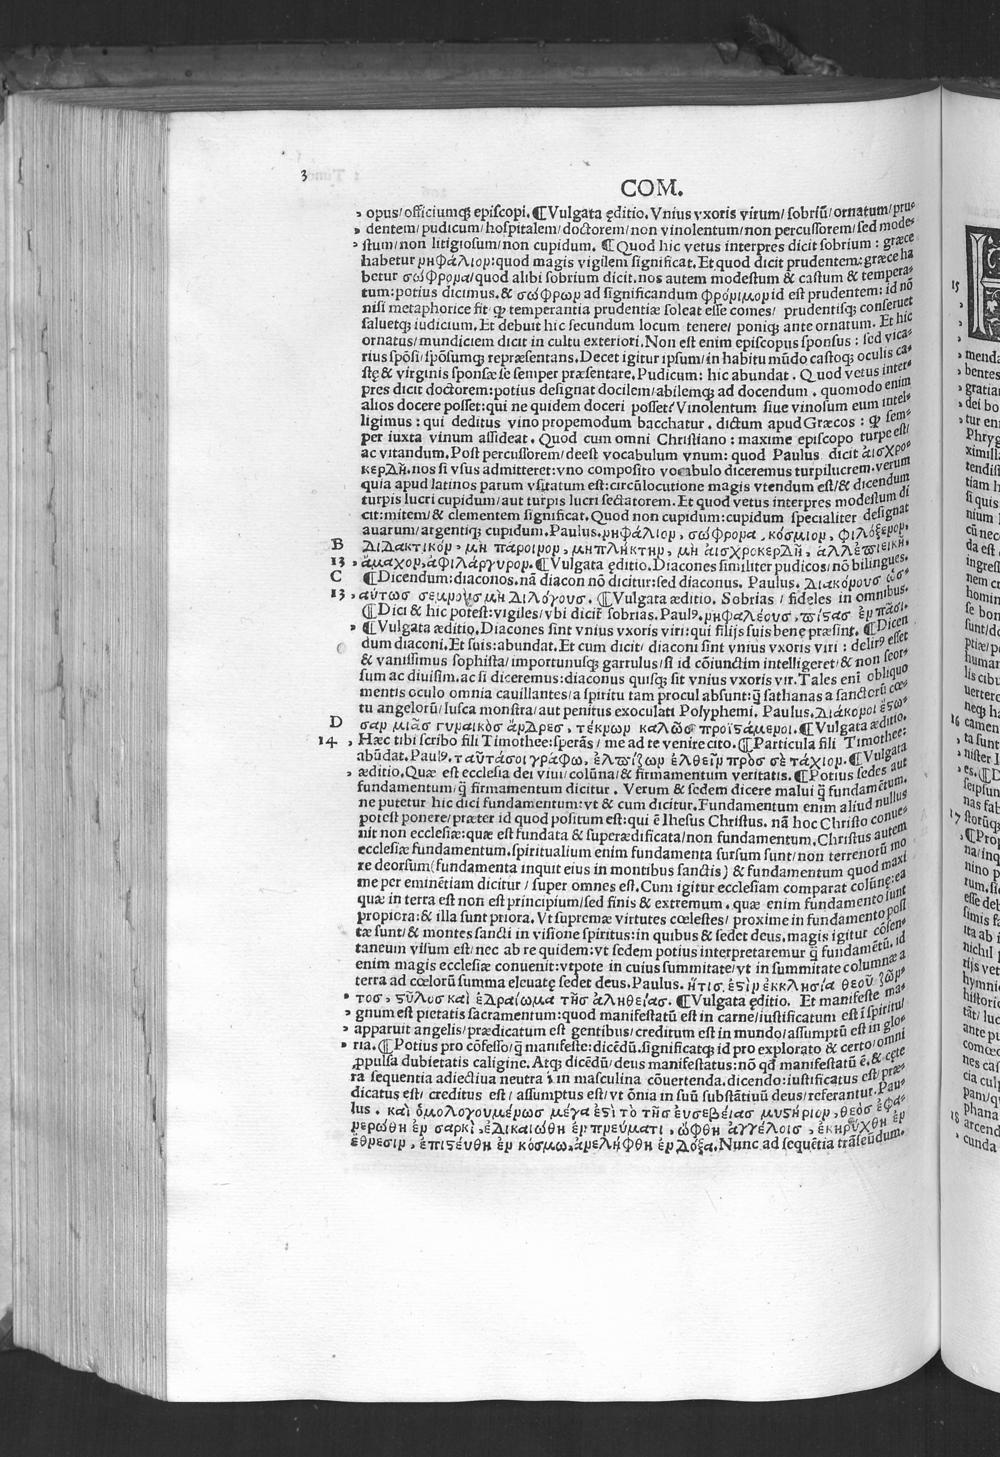 3
COM.
„ opus/officiumqꝫ episcopi. ¶Vulgata ęditio. Vnius vxoris virum/sobriū/ornatum/pru⸗
„ dentem/pudicum/hospitalem/doctorem/non vinolentum/non percussorem/sed mode⸗
„ stum/non litigiosum/non cupidum. ¶Quod hic vetus interpres dicit sobrium: græce
habetur νηφάλιον: quod magis vigilem significat. Et quod dicit prudentem: græce ha
betur σώφρονα/quod alibi sobrium dicit. nos autem modestum & castum & tempera⸗
tum: potius dicimus. & σώφρων ad significandum φρόνιμον id est prudentem: id nō
nisi metaphorice fit qꝫ temperantia prudentiæ soleat esse comes/ prudentisqꝫ conseruet
saluetqꝫ iudicium. Et debuit hic secundum locum tenere/poniqꝫ ante ornatum. Et hic
ornatus/mundiciem dicit in cultu exteriori. Non est enim episcopus sponsus: sed vica⸗
rius spōsi/spōsumqꝫ repræsentans. Decet igitur ipsum/in habitu mūdo castoqꝫ oculis ca⸗
stę & virginis sponsæ se semper præsentare. Pudicum: hic abundat. Quod vetus inter⸗
pres dicit doctorem: potius designat docilem/abilemqꝫ ad docendum. quomodo enim
alios docere posset: qui ne quidem doceri posset? Vinolentum siue vinosum eum intel⸗
ligimus: qui deditus vino propemodum bacchatur. dictum apud Græcos: qꝫ sem⸗
per iuxta vinum assideat. Quod cum omni Christiano: maxime episcopo turpe est/
ac vitandum. Post percussorem/deest vocabulum vnum: quod Paulus dicit ἀισχρο⸗
κερδῆ. nos si vsus admitteret: vno composito vocabulo diceremus turpilucrem. verum
quia apud latinos parum vsitatum est: circūlocutione magis vtendum est/& dicendum
turpis lucri cupidum/aut turpis lucri sectatorem. Et quod vetus interpres modestum di
cit: mitem/& clementem significat. Quod non cupidum: cupidum specialiter designat
auarum/argentiqꝫ cupidum. Paulus. νηφάλιον, σώφρονα, κόσμιον, φιλόξενον,
B διδακτικόν, μὴ πάροινον, μὴ πλήκτην, μὴ ἀισχροκερδῆ, ἀλλ᾽ἐπιεικῆ,
13 „ ἄμαχον, ἀφιλάργυρον. ¶Vulgata ędítio. Diacones similiter pudicos/nō bilingues.
C ¶Dicendum: diaconos. nā diacon nō dicitur: sed diaconus. Paulus. διακόνους ὡσ⸗
13 „ αύτωσ σεμνοὺς μὴ διλόγους. ¶Vulgata æditio. Sobrias/ fideles in omnibus.
¶Dici & hic potest: vigiles/vbi dicit sobrias. Paulꝰ. νηφαλέους, πίςασ ἐν πᾶσι.
„ ¶Vulgata æditio. Diacones sint vnius vxoris viri: qui filijs suis bene præsint. ¶Dicen
dum diaconi. Et suis: abundat. Et cum dicit/ diaconi sint vnius vxoris viri: delirꝰ esset
& vanissimus sophista/importunusqꝫ garrulus/si id cōiunctim intelligeret/& non seor⸗
sum ac diuisim. ac si diceremus: diaconus quisqꝫ sit vnius vxoris vir. Tales enī obliquo
mentis oculo omnia cauillantes/a spiritu tam procul absunt: q̄ sathanas a sanctorū cœ⸗
tu angelorū/lusca monstra/aut penitus exoculati Polyphemi. Paulus. διάκονοι ἔςω⸗
D σαν μιᾶσ γυναικὸσ ἄνδρες, τέκνων καλῶς προϊςάμενοι. ¶Vulgata æditio.
14 „ Hæc tibi scribo fili Timothee: sperās/ me ad te venire cito. ¶Particula fili Timothee:
abūdat. Paulꝰ. ταῦτάσοι γράφω, ἐλπίζων ἐλθεῖν πρὸσ σὲ τάχιον. ¶Vulgata
„ æditio. Quæ est ecclesia dei viui/colūna/& firmamentum veritatis. ¶Potius sedes aut
fundamentum/q̄ firmamentum dicitur. Verum & sedem dicere malui q̄ fundamētum.
ne putetur hic dici fundamentum: vt & cum dicitur. Fundamentum enim aliud nullus
potest ponere/præter id quod positum est: qui ē Ihesus Christus. nā hoc Christo conue⸗
nit non ecclesiæ: quæ est fundata & superædificata/non fundamentum. Christus autem
ecclesiæ fundamentum. spiritualium enim fundamenta sursum sunt/non terrenorū mo
re deorsum (fundamenta inquit eius in montibus sanctis) & fundamentum quod maxi
me per eminētiam dicitur/ super omnes est. Cum igitur ecclesiam comparat colūnę: ea
quæ in terra est non est principium/sed finis & extremum. quæ enim fundamento sunt
propiora: & illa sunt priora. Vt supremæ virtutes cœlestes/ proxime in fundamento posi
tæ sunt/& montes sancti in visione spiritus: in quibus & sedet deus. magis igitur cōsen⸗
taneum visum est/nec ab re quidem: vt sedem potius interpretaremur q̄ fundamētū. id
enim magis ecclesiæ conuenit: vtpote in cuius summitate/vt in summitate columnæ a
terra ad cœlorū summa eleuatę sedet deus. Paulus. ἥτις ἐςὶν ἐκκλησία θεοῦ ζῶν⸗
„ τοσ, ςῦλοσ καὶ ἑδραίωμα τῆσ ἀληθείασ. ¶Vulgata ęditio. Et manifeste ma⸗
„ gnum est pietatis sacramentum: quod manifestatū est in carne/iustificatum est ī spiritu/
„ apparuit angelis/prædicatum est gentibus/creditum est in mundo/assumptū est in glo⸗
„ ria. ¶Potius pro cōfesso/q̄ manifeste: dicēdū. significatqꝫ id pro explorato & certo/omni
ꝓpulsa dubietatis caligine. Atqꝫ dicēdū/deus manifestatus: nō qd manifestatū ē. & cęte
ra sequentia adiectiua neutra in masculina cōuertenda. dicendo: iustificatus est/præ⸗
dicatus est/ creditus est/ assumptus est/vt ōnia in suū substātiuū deus/referantur. Pau⸗
lus. καὶ ὁμολογουμένωσ μέγα ἐςὶ τὸ τῆσ ἐυσεβείασ μυςήριον, θεὸσ ἐφα⸗
νερώθη ἐν σαρκὶ, ἐδικαιώθη ἐν πνεύματι, ὤφθη ἀγγέλοισ, ἐκηρύχθη ἐν
ἔθνεσιν, ἐπιςέυθη ἐν κόσμω, ἀνελήφθη ἐν δόξα. Nunc ad sequētia trāseūdum.
15
16
17
18